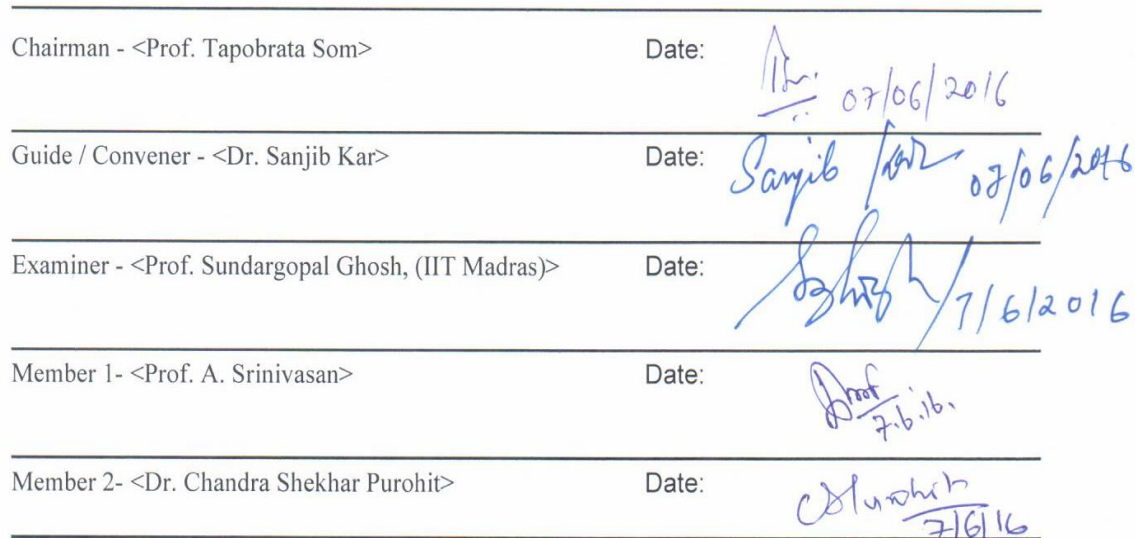 Chairman - <Prof. Tapobrata Som> Date:
07/06/2016
Guide / Convener - <Dr. Sanjib Kar> Date: Sanjib Kar 07/06/2016
Examiner - <Prof. Sundargopal Ghosh, (IIT Madras)> Date:
7/6/2016
Member 1- <Prof. A. Srinivasan> Date:
7.6.16.
Member 2- <Dr. Chandra Shekhar Purohit> Date: CSPurohit
7/6/16